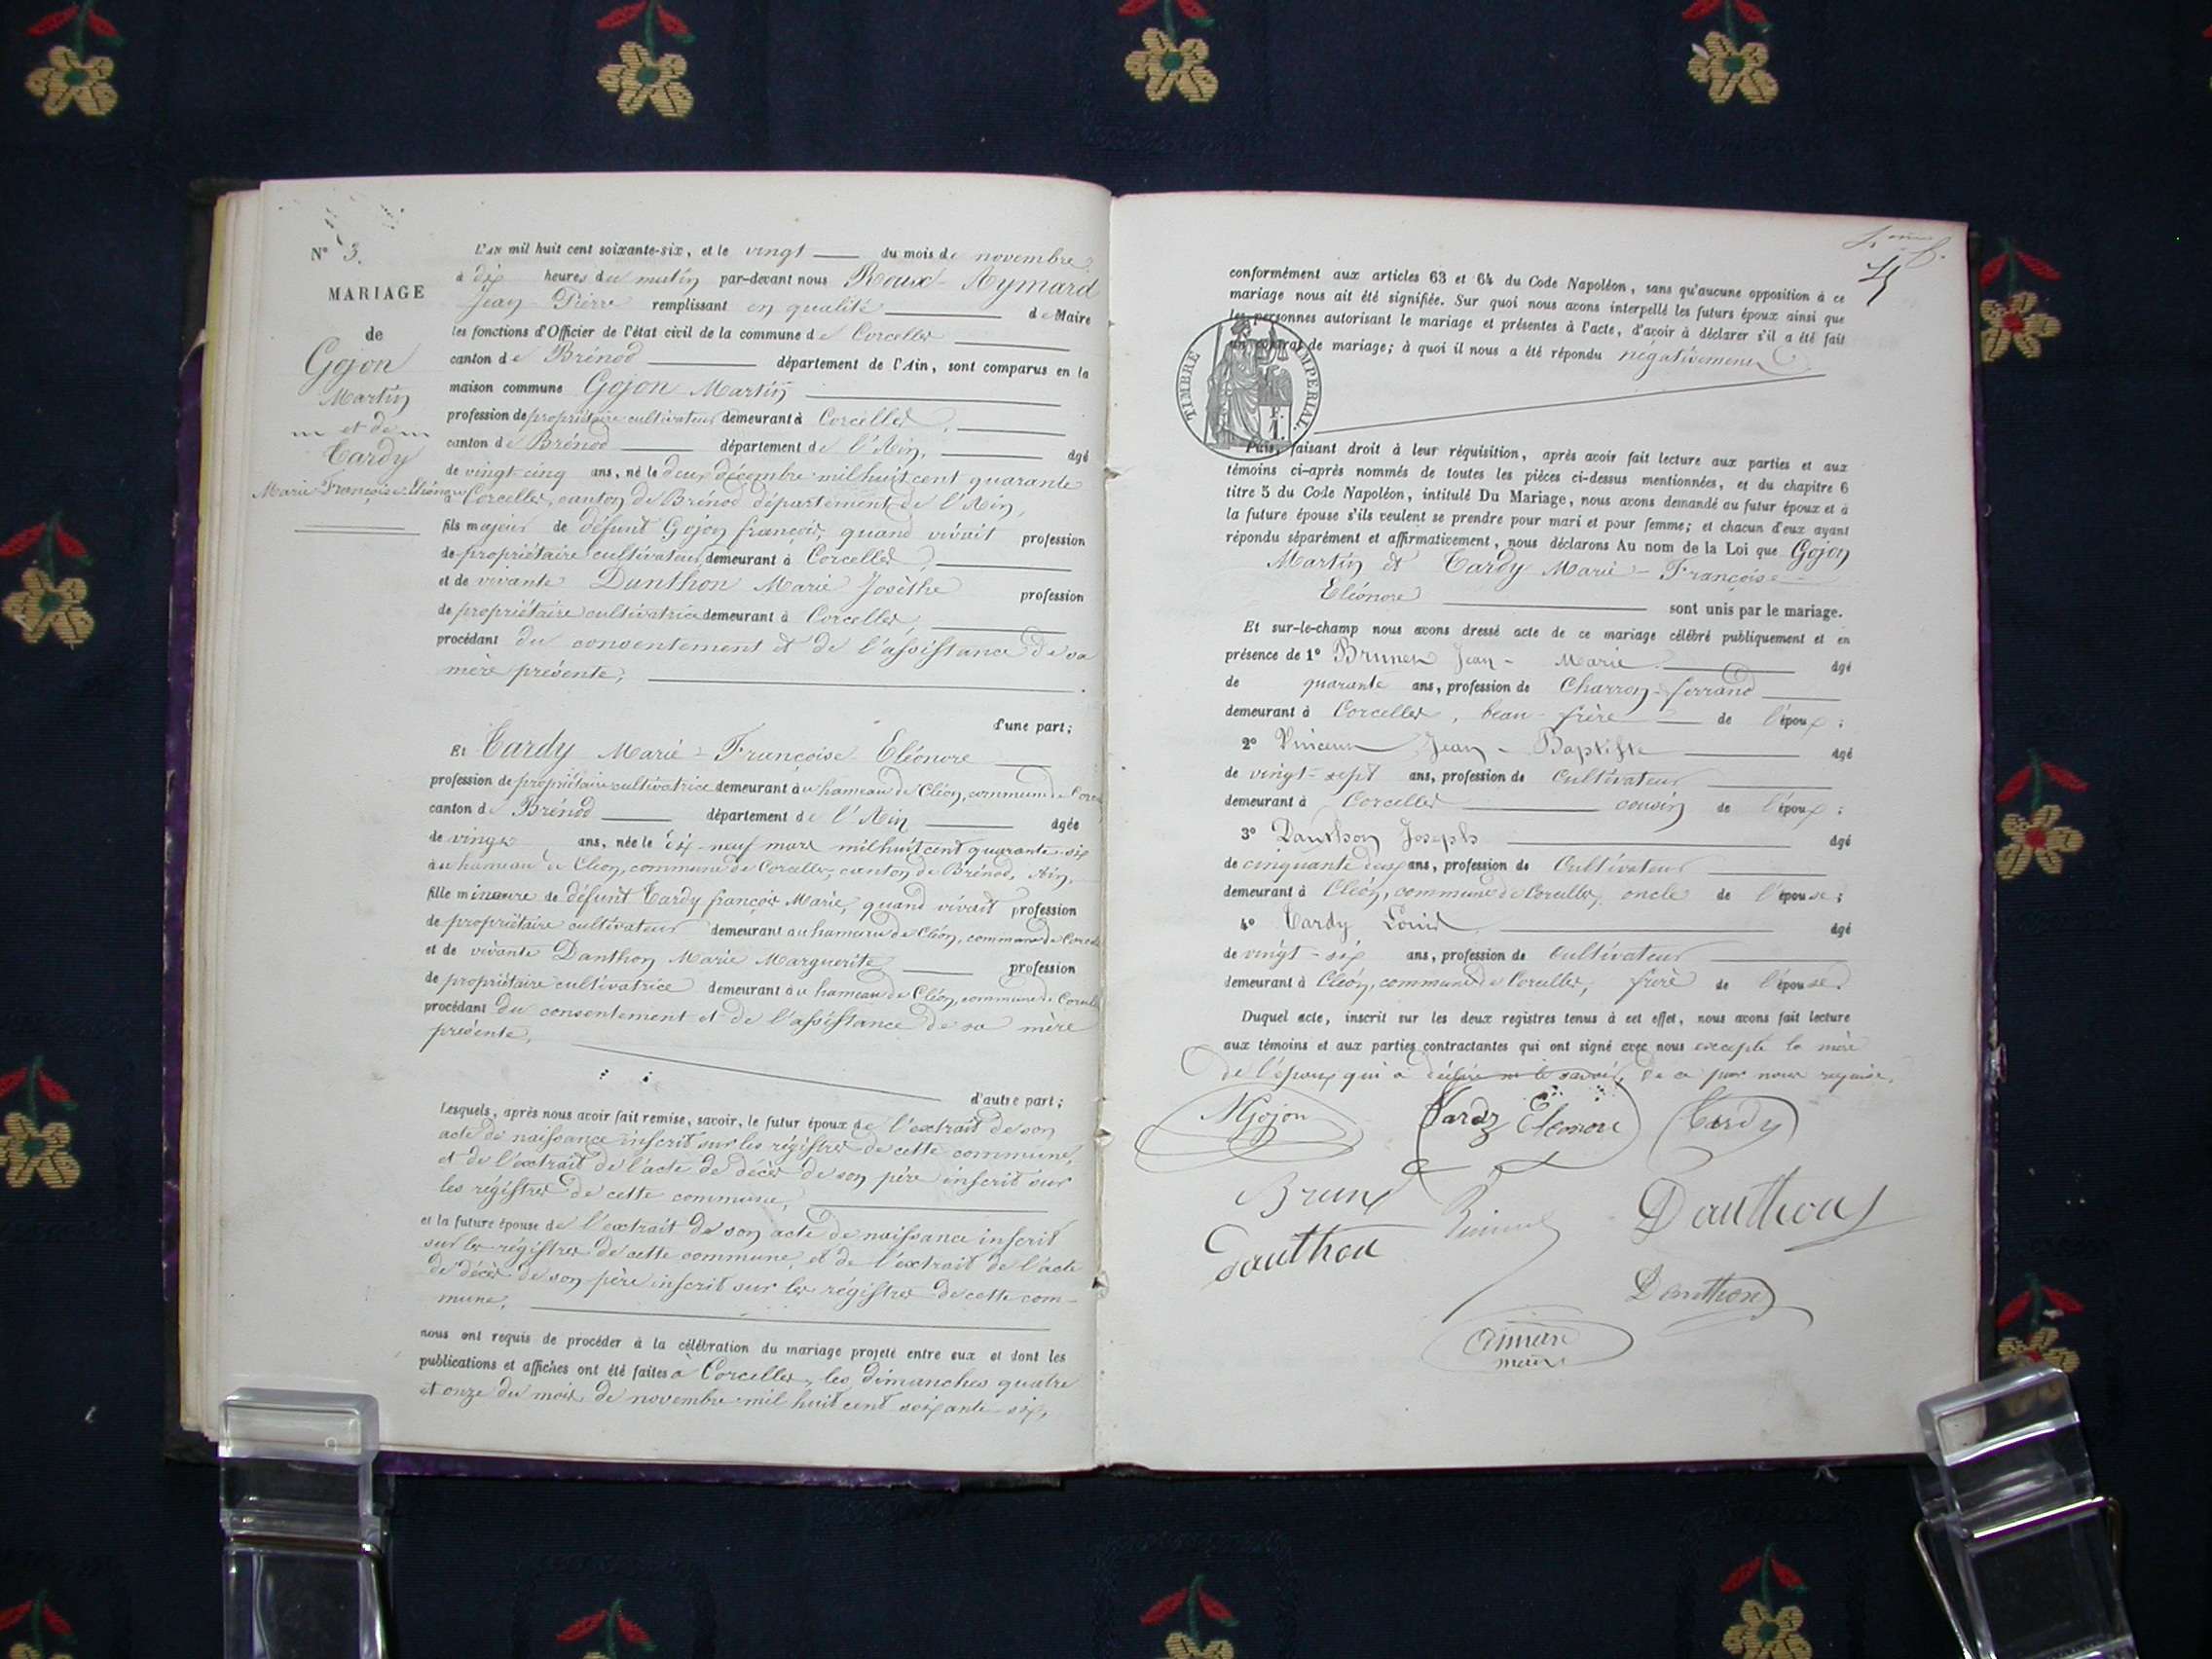 N° 3.
MARIAGE
de
Gojon
Martin
et de
Tardy
Marie-Françoise-Eléonore
L'AN mil huit cent soixante-six, et le vingt du mois de novembre
à dix heures du matin par-devant nous Roux-Aymard
Jean-Pierre remplissant en qualité de Maire
les fonctions d'Officier de l'état civil de la commune de Corcelles
canton de Brénod département de l'Ain, sont comparus en la
maison commune Gojon Martin
profession de propriétaire cultivateur demeurant à Corcelles,
canton de Brénod département de l'Ain, âgé
de vingt-cinq ans, né le deux décembre mil huit cent quarante
Corcelles, canton de Brénod département de l'Ain,
fils majeur de défunt Gojon françois, quand vivait profession
de propriétaire cultivateur demeurant à Corcelles,
et de vivante Danthon Marie Josèthe profession
de propriétaire cultivatrice demeurant à Corcelles,
procédant du consentement et de l'assistance de sa
mère présente,
d'une part;
Et Tardy Marie-Françoise Eléonore
profession de propriétaire cultivatrice demeurant au hameau de Cléon, commune de
canton de Brénod département de l'Ain âgée
de vingt ans, née le dix-neuf mars mil huit cent quarante-six
au hameau de Cléon, commune de Corcelles, canton de Brénod, Ain,
fille mineure de défunt Tardy françois Marie, quand vivait profession
de propriétaire cultivateur demeurant au hameau de Cléon, commune de
et de vivante Danthon Marie Marguerite profession
de propriétaire cultivatrice demeurant au hameau de Cléon, commune de
procédant du consentement et de l'assistance de sa mère
présente,
d'autre part;
Lesquels, après nous avoir fait remise, savoir, le futur époux de l'extrait de son
acte de naissance inscrit sur les régistres de cette commune,
et de l'extrait de l'acte de décès de son père inscrit sur
les régistres de cette commune,
et la future épouse de l'extrait de son acte de naissance inscrit
sur les régistres de cette commune, et de l'extrait de l'acte
de décès de son père inscrit sur les régistres de cette com-
mune,
nous ont requis de procéder à la célébration du mariage projeté entre eux et dont les
publications et affiches ont été faites à Corcelles, les dimanches quatre
et onze du mois de novembre mil huit cent soixante-six,
conformément aux articles 63 et 64 du Code Napoléon, sans qu'aucune opposition à ce
mariage nous ait été signifiée. Sur quoi nous avons interpellé les futurs époux ainsi que
les personnes autorisant le mariage et présentes à l'acte, d'avoir à déclarer s'il a été fait
un contrat de mariage; à quoi il nous a été répondu négativement
TIMBRE IMPERIAL
1 F.
Puis, faisant droit à leur réquisition, après avoir fait lecture aux parties et aux
témoins ci-après nommés de toutes les pièces ci-dessus mentionnées, et du chapitre 6
titre 5 du Code Napoléon, intitulé Du Mariage, nous avons demandé au futur époux et à
la future épouse s'ils veulent se prendre pour mari et pour femme; et chacun d'eux ayant
répondu séparément et affirmativement, nous déclarons Au nom de la Loi que Gojon
Martin et Tardy Marie-Françoise
Eléonore sont unis par le mariage.
Et sur-le-champ nous avons dressé acte de ce mariage célébré publiquement et en
présence de 1° Brunet Jean-Marie âgé
de quarante ans, profession de Charron-ferrand
demeurant à Corcelles, beau-frère de l'époux;
2° Vincent Jean-Baptiste âgé
de vingt-sept ans, profession de Cultivateur
demeurant à Corcelles cousin de l'époux;
3° Danthon Joseph âgé
de cinquante deux ans, profession de Cultivateur
demeurant à Cléon, commune de Corcelles, oncle de l'épouse;
4° Tardy Louis âgé
de vingt-six ans, profession de Cultivateur
demeurant à Cléon, commune de Corcelles, frère de l'épouse.
Duquel acte, inscrit sur les deux registres tenus à cet effet, nous avons fait lecture
aux témoins et aux parties contractantes qui ont signé avec nous excepté la mère
de l'époux qui a déclaré ne le savoir, de ce par nous requise.
MGojon Tardy Eléonore Tardy
Brunet Danthon
Danthon
Danthon
maire